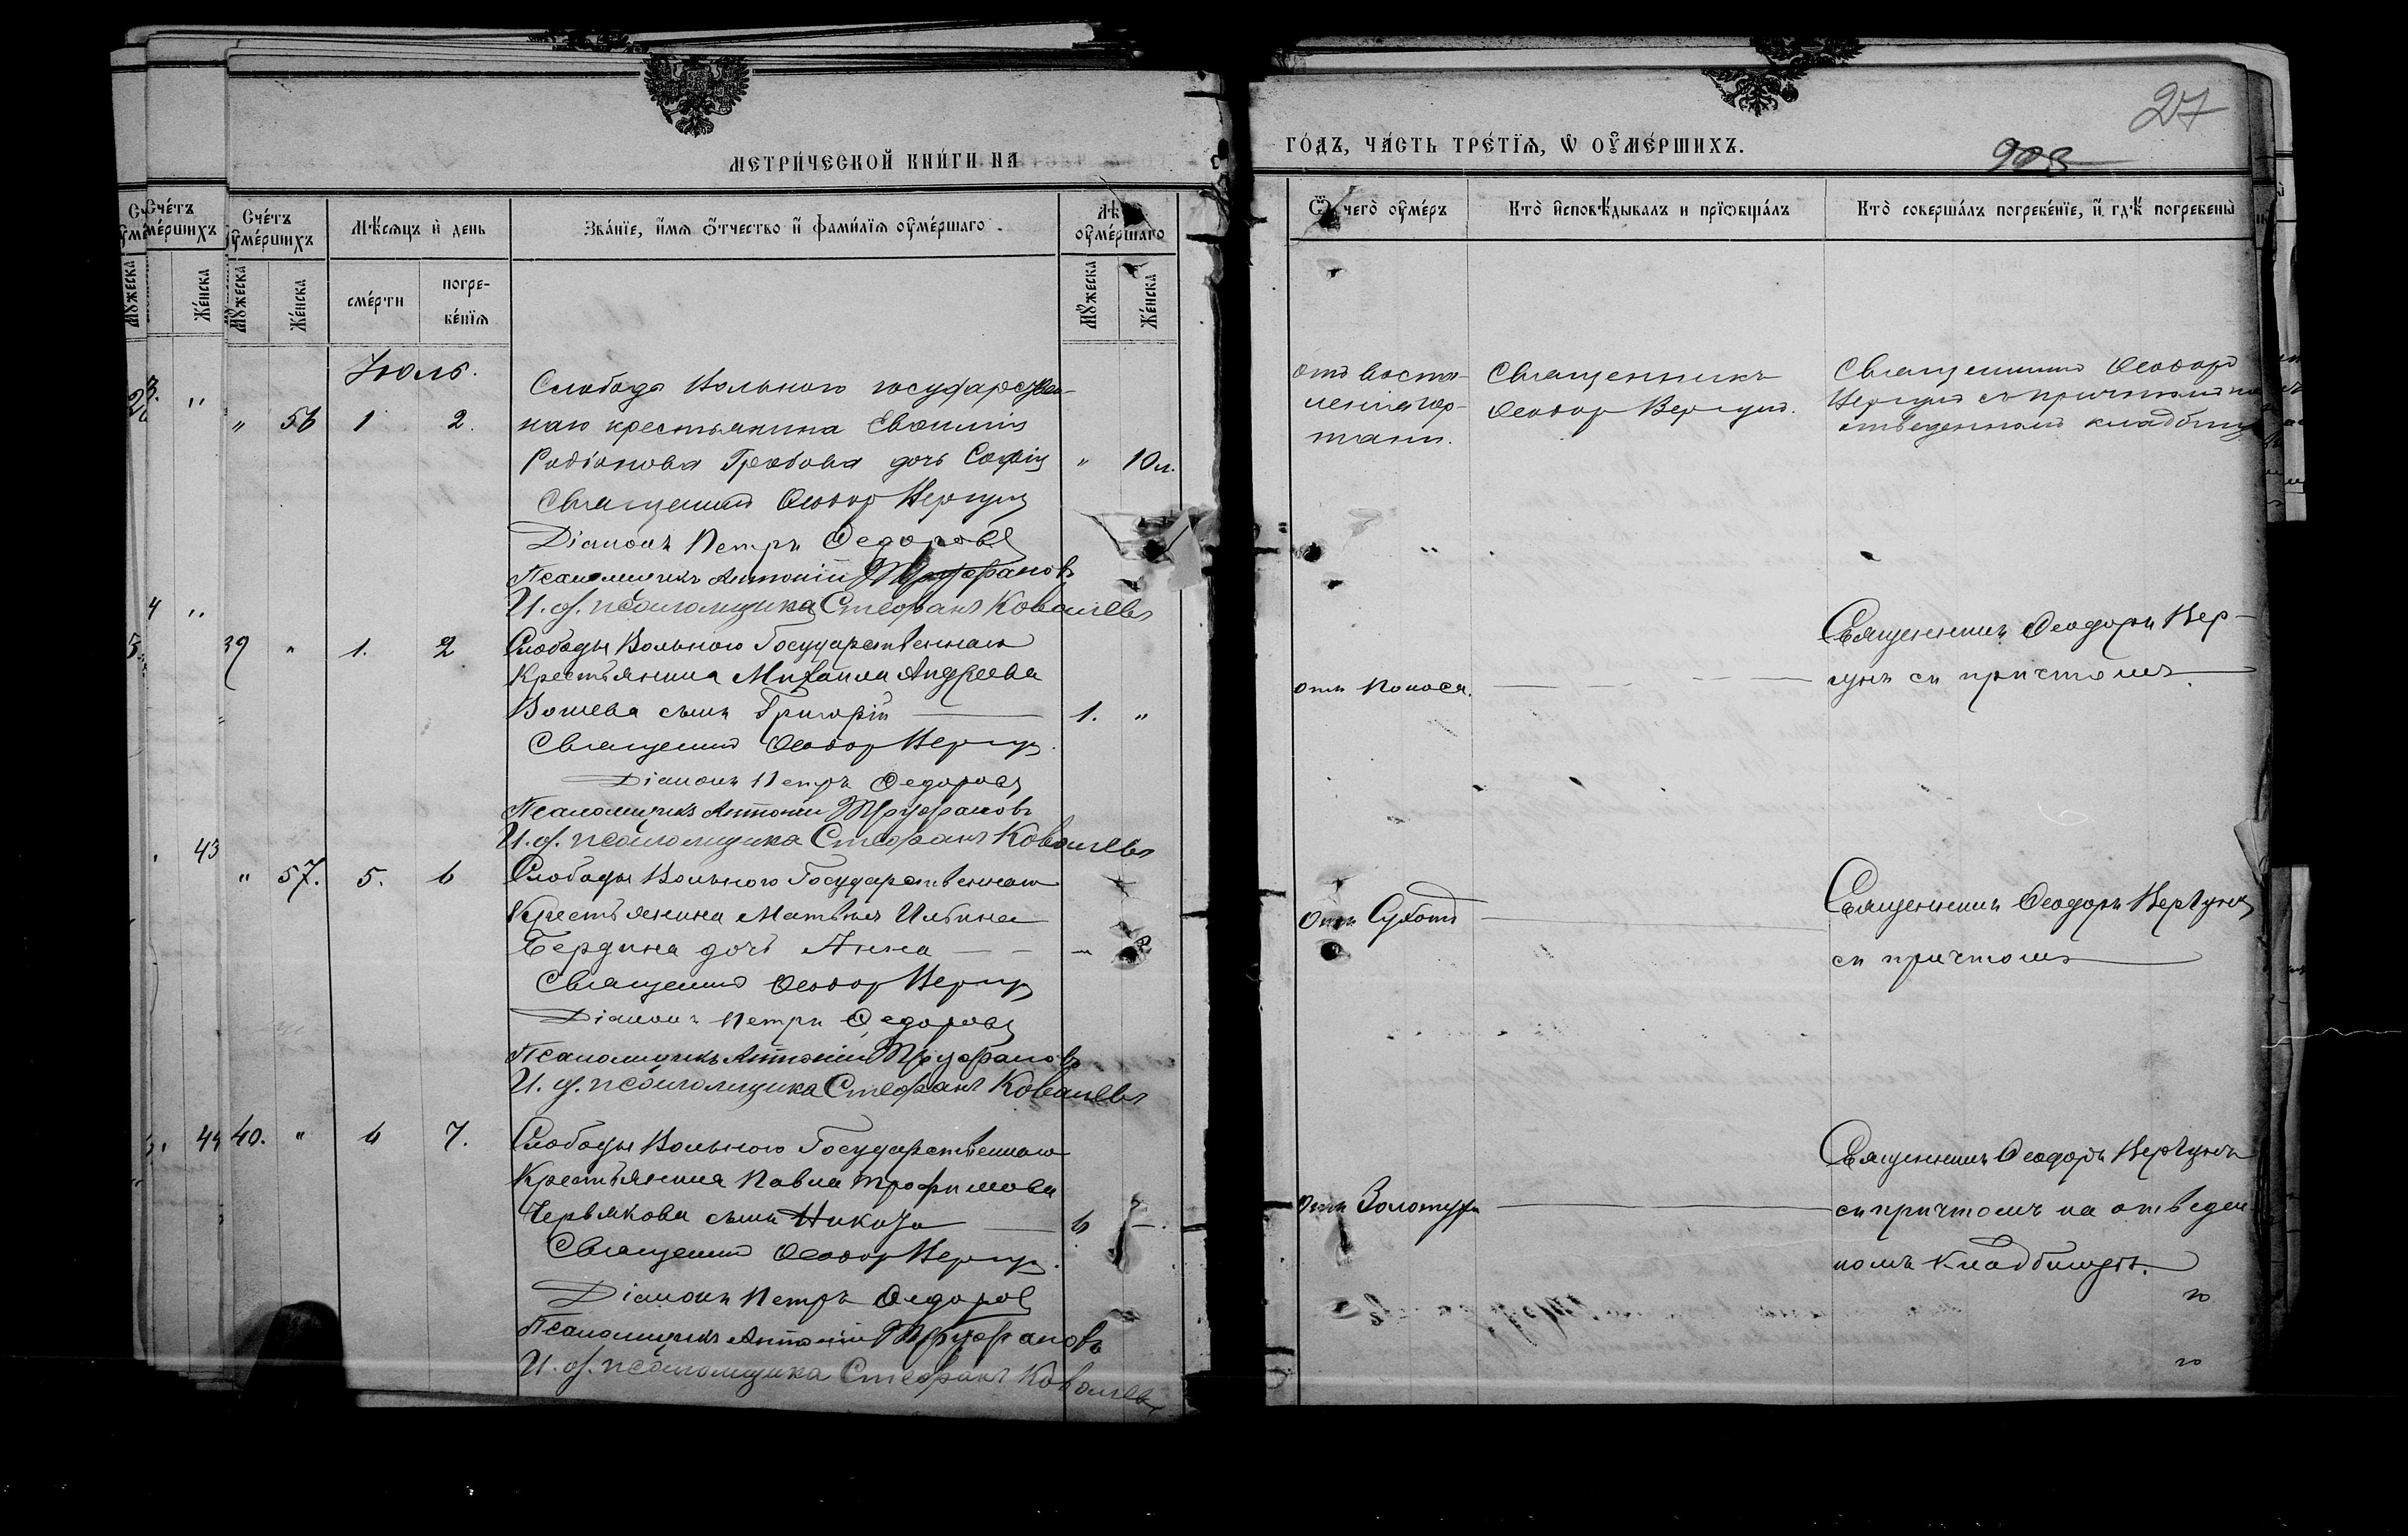 27
903
МЕТРИ́ЧЕСКОЙ КНИ́ГИ НА
ГО́ДЪ, ЧА́СТЬ ТРЕ́ТІѦ, Ѡ҆ ОУ҆МЕ́РШИХЪ.
Сче́тъ оу҆ме́ршихъ
Мѣ́сѧцъ и҆ де́нь
Зва́нїе, и҆́мѧ ѻ҆́тчество и҆ фами́лїѧ оу҆ме́ршаго.
Лѣ оу҆ме́ршаго
Ѿ чего̀ оу҆ме́ръ
Кто̀ и҆сповѣ́дывалъ и прїѡбща́лъ
Кто̀ соверша́лъ погребе́нїе, и҆ гдѣ̀ погребены̀
Мꙋ́жеска
Же́нска
сме́рти
погре-
бе́нїѧ
Мꙋ́жеска
Же́нска
Іюль.
" 56 1 2.
Слобода Вольного государствен-
наго крестьянина Евфимія
Родіонова Грекова дочь Софія " 10 л.
Священникъ Ѳеодор Вергун
Діаконъ Петръ Ѳедоровъ
Псаломщикъ Антоній Труфановъ
И. д. псаломщика Стефанъ Ковалевъ
отъ воспа-
ленія гор-
тани.
Священникъ
Ѳеодор Вергун.
Священникъ Ѳеодоръ
Вергунъ съ причтомъ на
отведенномъ кладбищѣ
39 " 1. 2
Слободы Вольного Государственнаго
Крестьянина Михаила Андреева
Вошева сынъ Григорій 1. "
Священникъ Ѳеодор Вергун.
Діаконъ Петръ Ѳедоровъ
Псаломщикъ Антоній Труфановъ
И. д. псаломщика Стефанъ Ковалевъ
отъ Поноса.
Священникъ Ѳеодоръ Вер-
гунъ съ причтомъ
" 57. 5. 6
Слободы Вольного Государственнаго
Крестьянина Матвѣя Ильина
Бердина дочь Анна
Священникъ Ѳеодор Вергун
Діаконъ Петръ Ѳедоровъ
Псаломщикъ Антоній Труфановъ
И. д. псаломщика Стефанъ Ковалевъ
Отъ Сухотъ
Священникъ Ѳеодоръ Вергунъ
съ причтомъ
40. " 6 7.
Слободы Вольного Государственнаго
Крестьянина Павла Трофимова
Червякова сынъ 6
Священникъ Ѳеодор Вергун.
Діаконъ Петръ Ѳедоровъ
Псаломщикъ Антоній Труфановъ
И. д. псаломщика Стефанъ Ковалевъ
Отъ Золотухи
Священникъ Ѳеодоръ Вергунъ
съ причтомъ на отведен
номъ кладбищѣ.
43
44